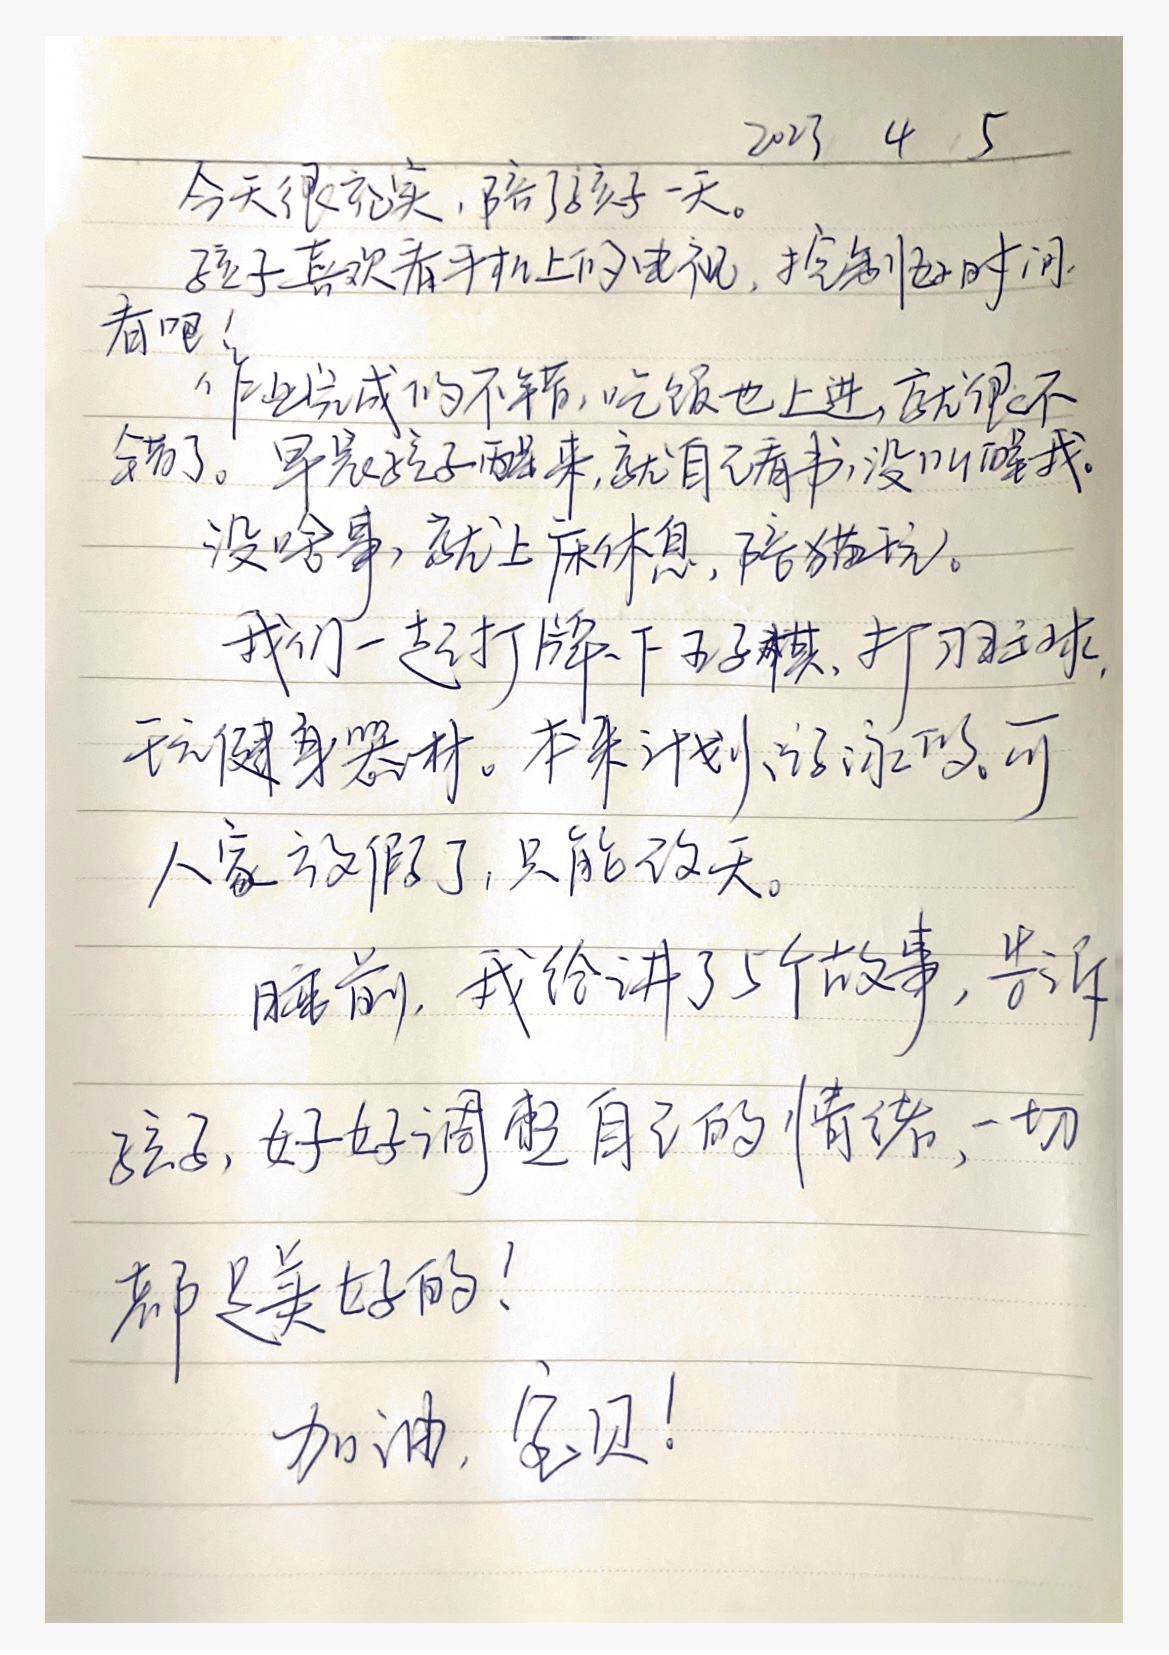 2023 4 5
今天很充实,陪了孩子一天。
孩子喜欢看手机上的电视,控制好时间.
看吧!
作业完成的不错,吃饭也上进,就很不
错了。早晨孩子醒来,就自己看书,没叫醒我。
没啥事,就上床休息,陪猫玩。
我们一起打牌、下五子棋、打羽毛球,
玩健身器材。本来计划游泳的,可
人家放假了,只能改天。
睡前,我给讲了5个故事,告诉
孩子,好好调整自己的情绪,一切
都是美好的!
加油,宝贝!